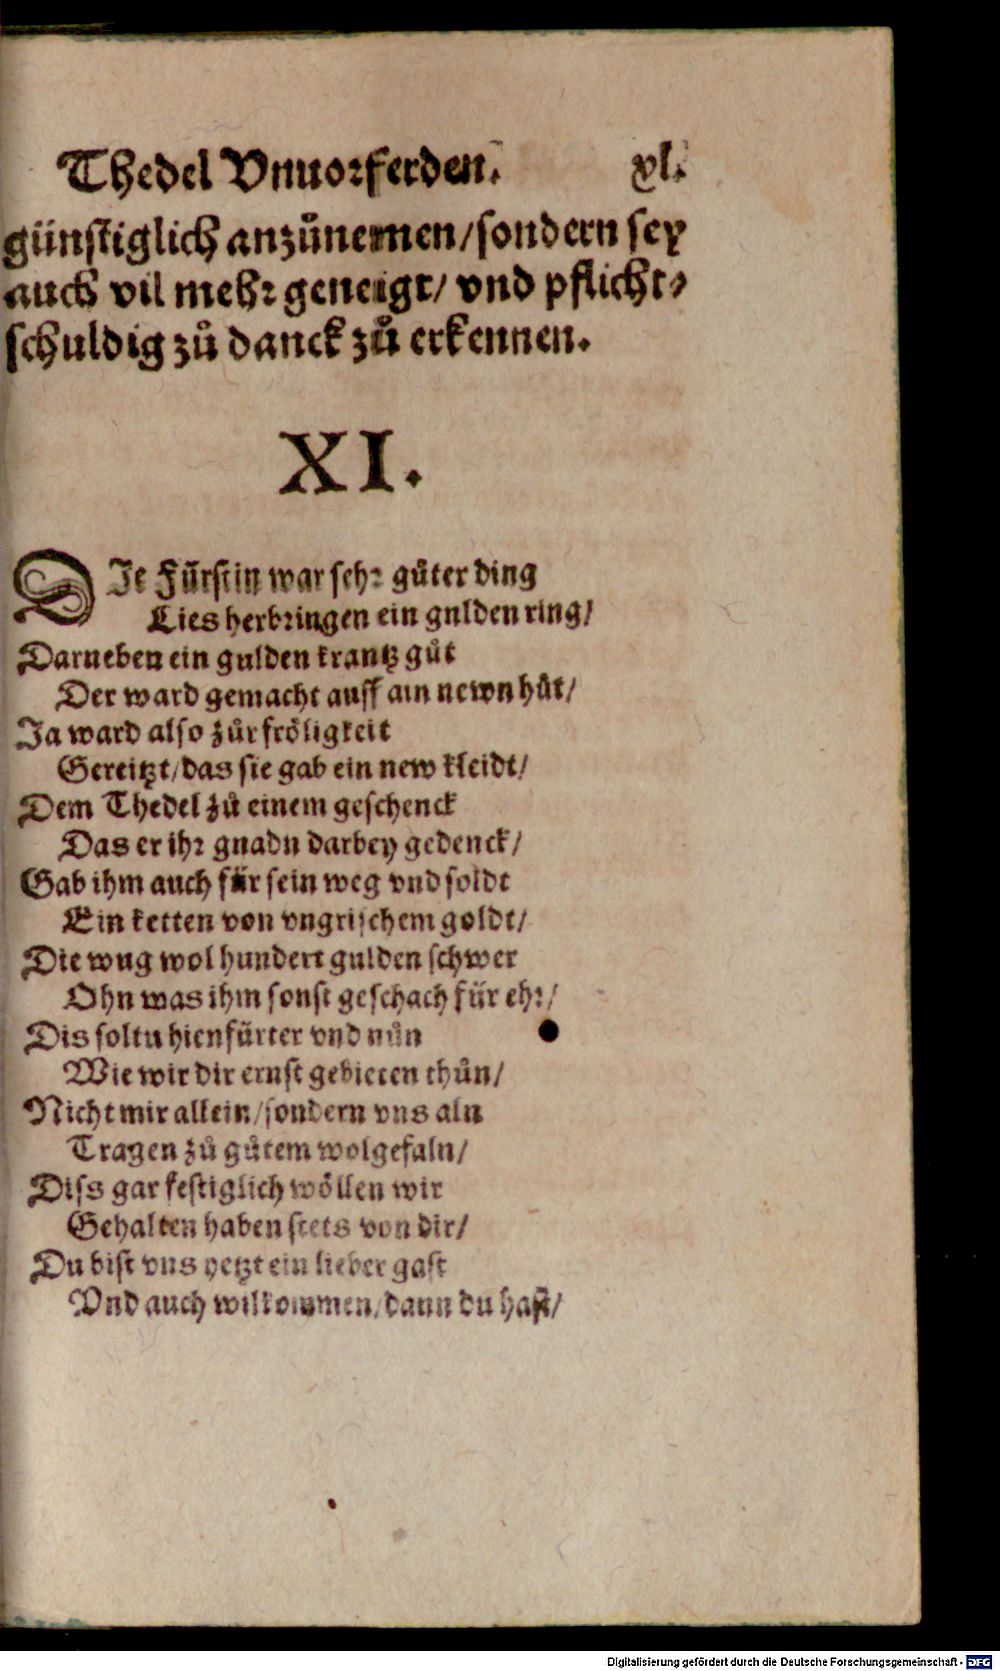 Thedel Vnuorferden. xl.
günstiglich anzůnemen/sondern sey
auch vil mehr geneigt/ vnd pflicht⸗
schuldig zů danck zů erkennen.
XI.
DIe Fürstin war sehr gůter ding
Lies herbringen ein gulden ring/
Darneben ein gulden krantz gůt
Der ward gemacht auff ain newn hůt/
Ja ward also zůr fröligkeit
Gereitzt/das sie gab ein new kleidt/
Dem Thedel zů einem geschenck
Das er ihr gnadn darbey gedenck/
Gab ihm auch für sein weg vnd soldt
Ein ketten von vngrischem goldt/
Die wug wol hundert gulden schwer
Ohn was ihm sonst geschach für ehr/
Dis soltu hienfürter vnd nůn
Wie wir dir ernst gebieten thůn/
Nicht mir allein/sondern vns aln
Tragen zů gůtem wolgefaln/
Diss gar festiglich wöllen wir
Gehalten haben stets von dir/
Du bist vns yetzt ein lieber gast
Vnd auch willkommen/dann du hast/
Digitalisierung gefördert durch die Deutsche Forschungsgemeinschaft - DFG